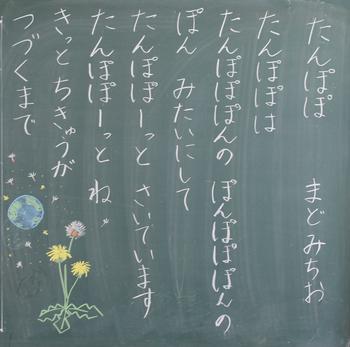 たんぽぽ　まどみちお
たんぽぽは
たんぽぽぽんの　ぽんぽぽぽんの
ぽん　みたいにして
たんぽぽーっと　さいています
たんぽぽーっと　ね、
きっと　ちきゅうが
つづくまで